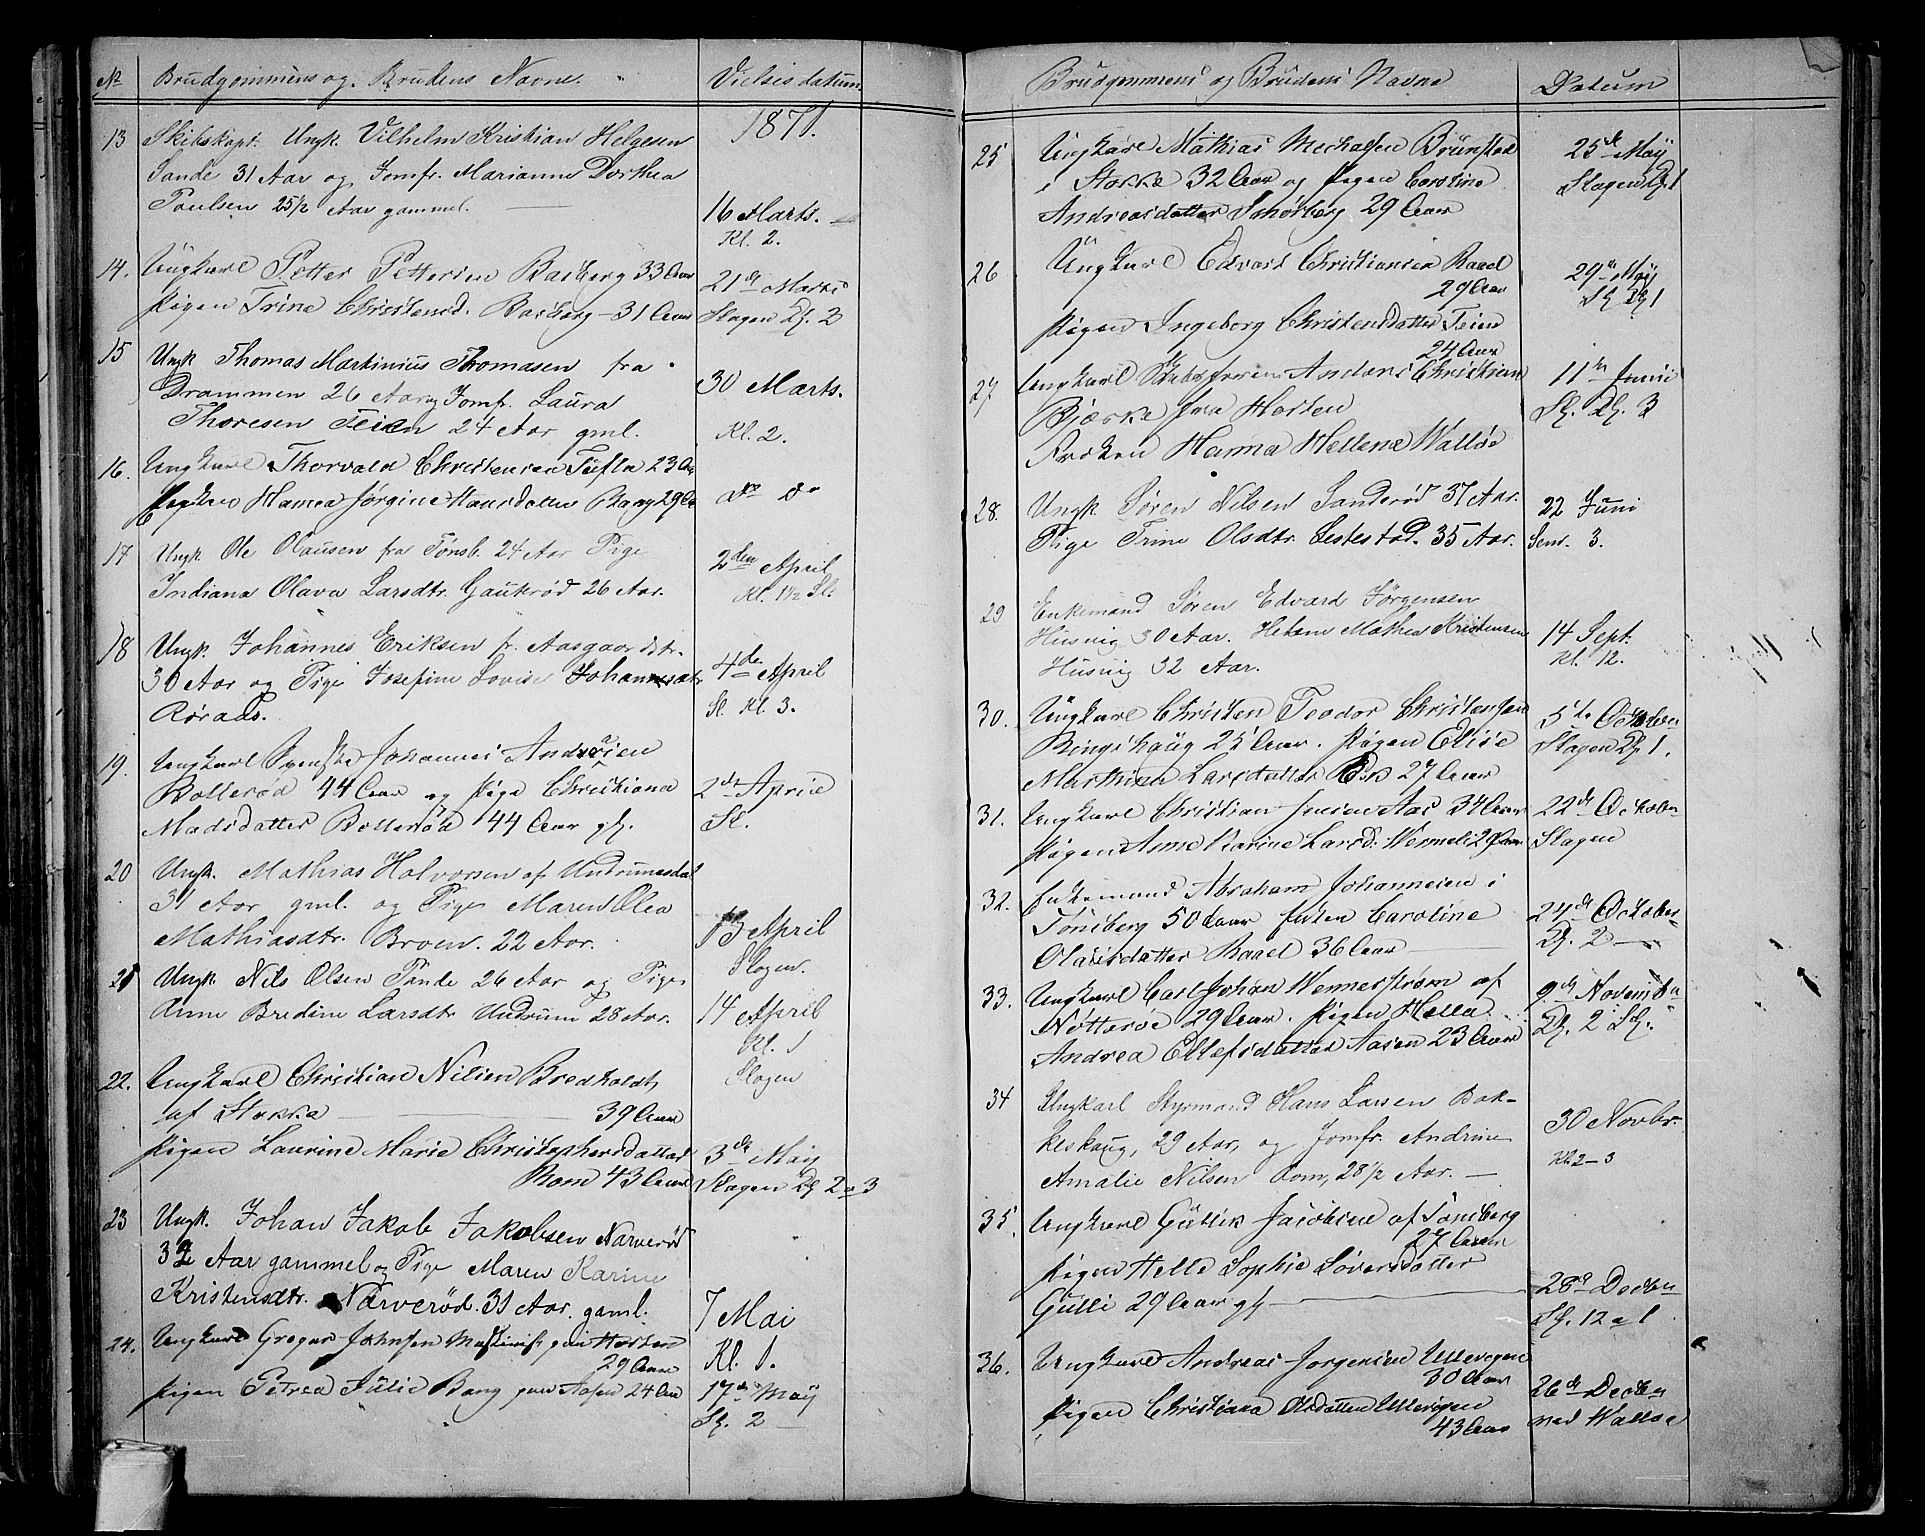 No Brudgommens og Brudens Navne. Vielsesdatum
1871.
13 Skibskapt. Ungk. Vilhelm Kristian Helgesen
Sande 31 Aar og Jomfr. Marianne Dorthea
Poulsen 25 1/2 Aar gammel. 16 Marts.
Kl. 2.
14. Ungkarl Petter Pettersen Basberg 33 Aar 21de Marts
Pigen Trine Christensd. Basberg 31 Aar Slagen Kl. 2
15 Ungk Thomas Martinius Thomasen fra
Drammen 26 Aar og Jomfr. Laura 30 Marts.
Thoresen Teien 24 Aar gml. Kl. 2.
16. Ungkarl Thorvald Christensen Tufla 23 Aar
Pigen Hanna Jørgine Hansdatter Bang 29 Aar do do
17 Ungk. Ole Olausen fra Tønsb. 24 Aar Pige 2den April
Indiana Olava Larsdtr. Gaukrød 26 Aar. Kl. 1 1/2 Sl.
18 Ungk. Johannes Eriksen fr. Aasgaardstr.
30 Aar og Pige Josefine Lovise Johannesdtr 4de April
Røraas. Sl. Kl. 3.
19. Ungkarl Svenske Johannes Andresen
Bollerød 44 Aar og Pige Christiana 2de April
Madsdatter Bollerød 44 Aar gl. Sl.
20 Ungk. Mathias Halvorsen af Undrumsdal
31 Aar gml. og Pige Maren Olea
Mathiasdtr. Broen. 22 Aar. 13 April
Slagen.
21 Ungk. Nils Olsen Tande 26 Aar og Pige
Anne Bredine Larsdtr Undrum 28 Aar. 14 April
Kl. 1
Slagen
22. Ungkarl Christian Nilsen Bredholdt
af Stokke 39 Aar
Pigen Laurine Marie Christophersdatter 3de Maÿ
Rom 43 Aar Slagen Kl 2 a 3
23 Ungk. Johan Jakob Jakobsen Narverød
32 Aar gammel og Pige Maren Karine
Kristensdtr. Narverød. 31 Aar. gaml. 7 Mai
Kl. 1.
24. Ungkarl Gregar Johnsen Maskinist paa Horten
29 Aar
Pigen Petrea Julie Bang paa Aasen 24 Aar 17de Maÿ
Kl. 2
Brudgommens og Brudens Navne Datum
25 Ungkarl Mathias Michalsen Brunstad 25de Maÿ
i Stokke 32 Aar og Pigen Caroline Slagen Kl. 1
Andreasdatter Schørberg 29 Aar
26 Ungkarl Edvard Christiansen Raael 29de Maÿ
29 Aar Sl. Kl 1
Pigen Ingeborg Christensdatter Teien
24 Aar
27 Ungkarl Anders Christian 11te Junii
Bjerke fra Horten Sl. Kl. 3
Frøken Hanna Hellene Walløe
28. Ungk. Søren Nilsen Sanderød 37 Aar. 22 Juni
Pige Trine Olsdtr. Sestestad. 35 Aar. 3.
29 Enkemand Søren Edvard Jørgensen
Husvig 30 Aar. Helene Mathea Kristensen 14 Sept.
Husvig 32 Aar. Kl. 12.
30. Ungkarl Christen Teodor Christensen 5te October
Ringshaug 25 Aar. Pigen Elise Slagen Kl 1.
Marthine Larsdatter Ræs 27 Aar
31. Ungkarl Christian Jensen Aas 34 Aar 22de October
Pigen Anne Karine Larsd. Wermeli 29 Aar Slagen
32. Enkemand Abraham Johannesen i
Tønsberg 50 Aar Pigen Caroline 24de October
Olausdatter Raael 36 Aar Kl. 2
33. Ungkarl Carl Johan Wennerstrøm af 9de November
Nøtterøe 29 Aar. Pigen Hella Kl. 2 Sl.
Andrea Ellefsdatter Aasen 23 Aar
34 Ungkarl Styrmand Hans Larsen Bak-
keskaug, 29 Aar, og Jomfr. Andrine 30 Novbr.
Amalie Nilsen Rom, 28 1/2 Aar. Kl. 2-3
35. Ungkarl Gullik Jacobsen af Tønsberg
27 Aar
Pigen Helle Sophie Sørensdatter
Gulli 29 Aar gl 28de Decbr
Kl. 12 a 1
36. Ungkarl Andreas Jørgensen Ullevigen
30 Aar 26de Decbr
Pigen Christiana Olsdatter Ullevigen ved Walløe
43 Aar